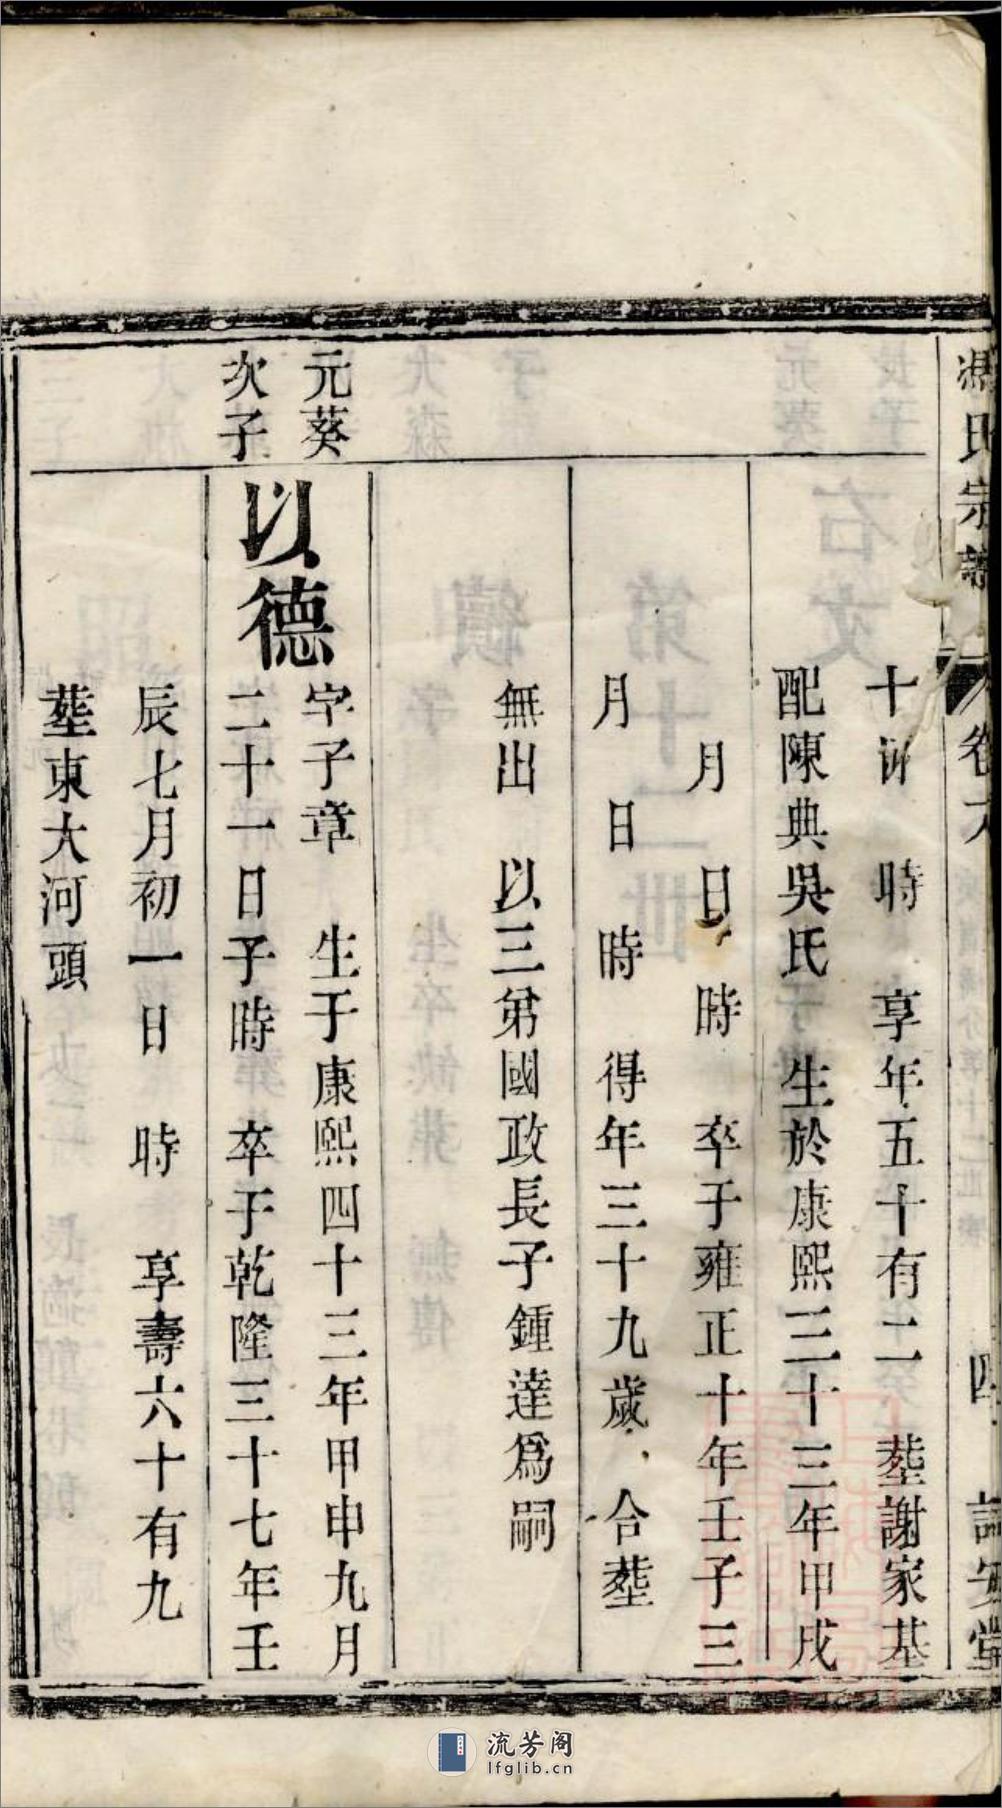 氏宗譜
卷六
四
十
時 享年五十有二 塟謝家基
配陳典吳氏 生於康熙三十三年甲戌
月 日 時 卒于雍正十年壬子三
月 日 時 得年三十九歲 合塟
無出 以三弟國政長子鍾達為嗣
元葵
次子
以德
字子章 生于康熙四十三年甲申九月
二十一日子時 卒于乾隆三十七年壬
辰七月初一日 時 享壽六十有九
塟東大河頭
流芳阁
lfglib.cn